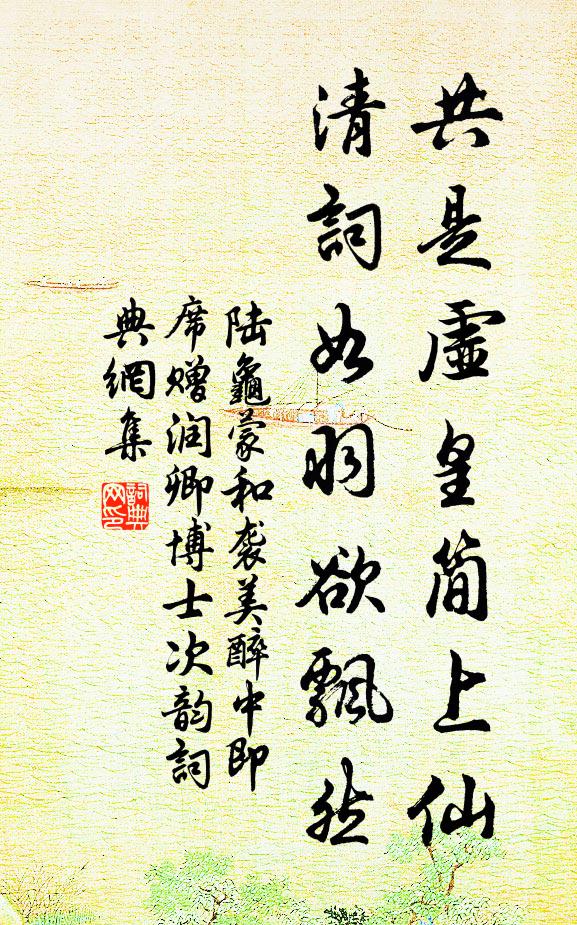 共是虛皇簡上仙
清詞如羽欲飄然
陆龜蒙和袭美醉中即
席赠润卿博士次韵詞
典網集
詞典
网印